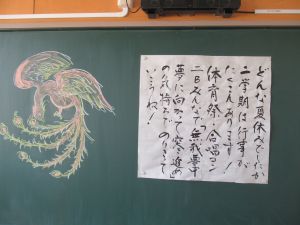 どんな夏休みでしたか
二学期は行事が
たくさんあります！
体育祭・合唱コン
二Bみんなで「無我夢中
夢に向かって突き進め」
の気持ちで のりきって
いこうね！